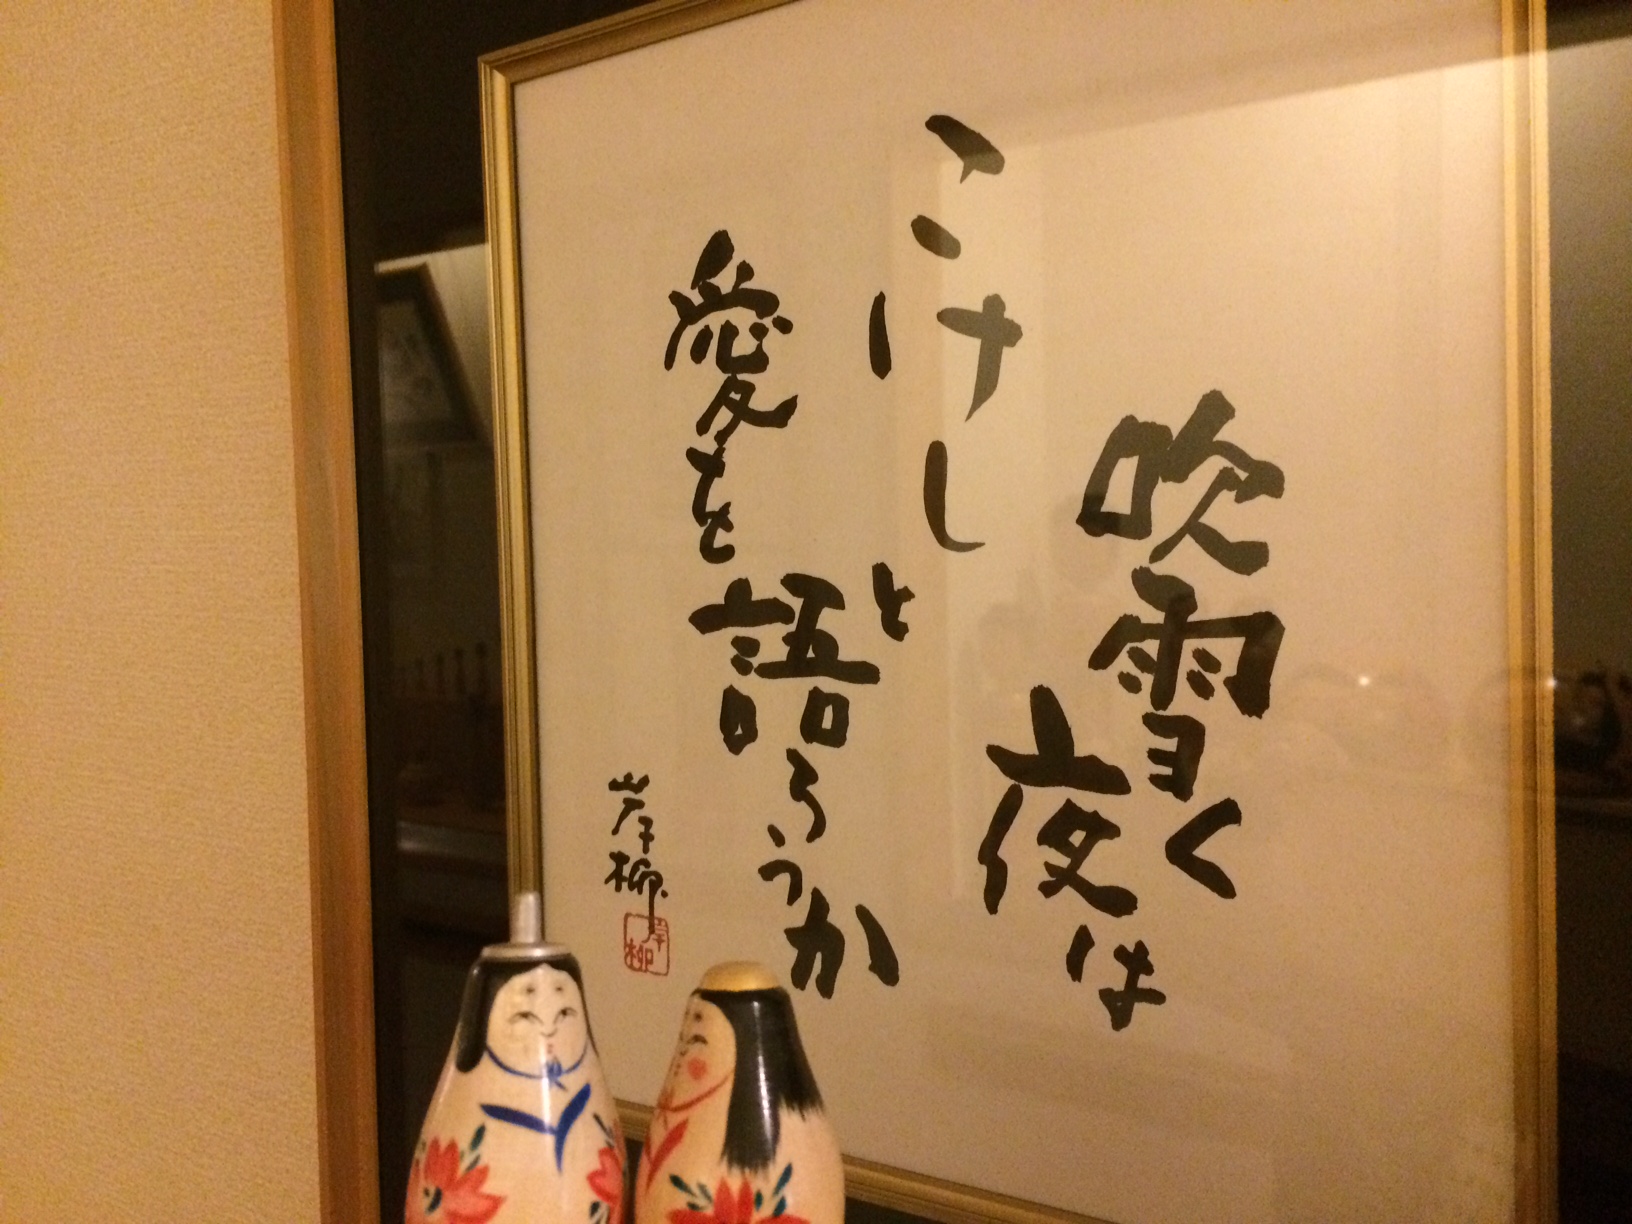 吹雪く
夜は
こけしと
愛を
語ろうか
岸柳
岸柳